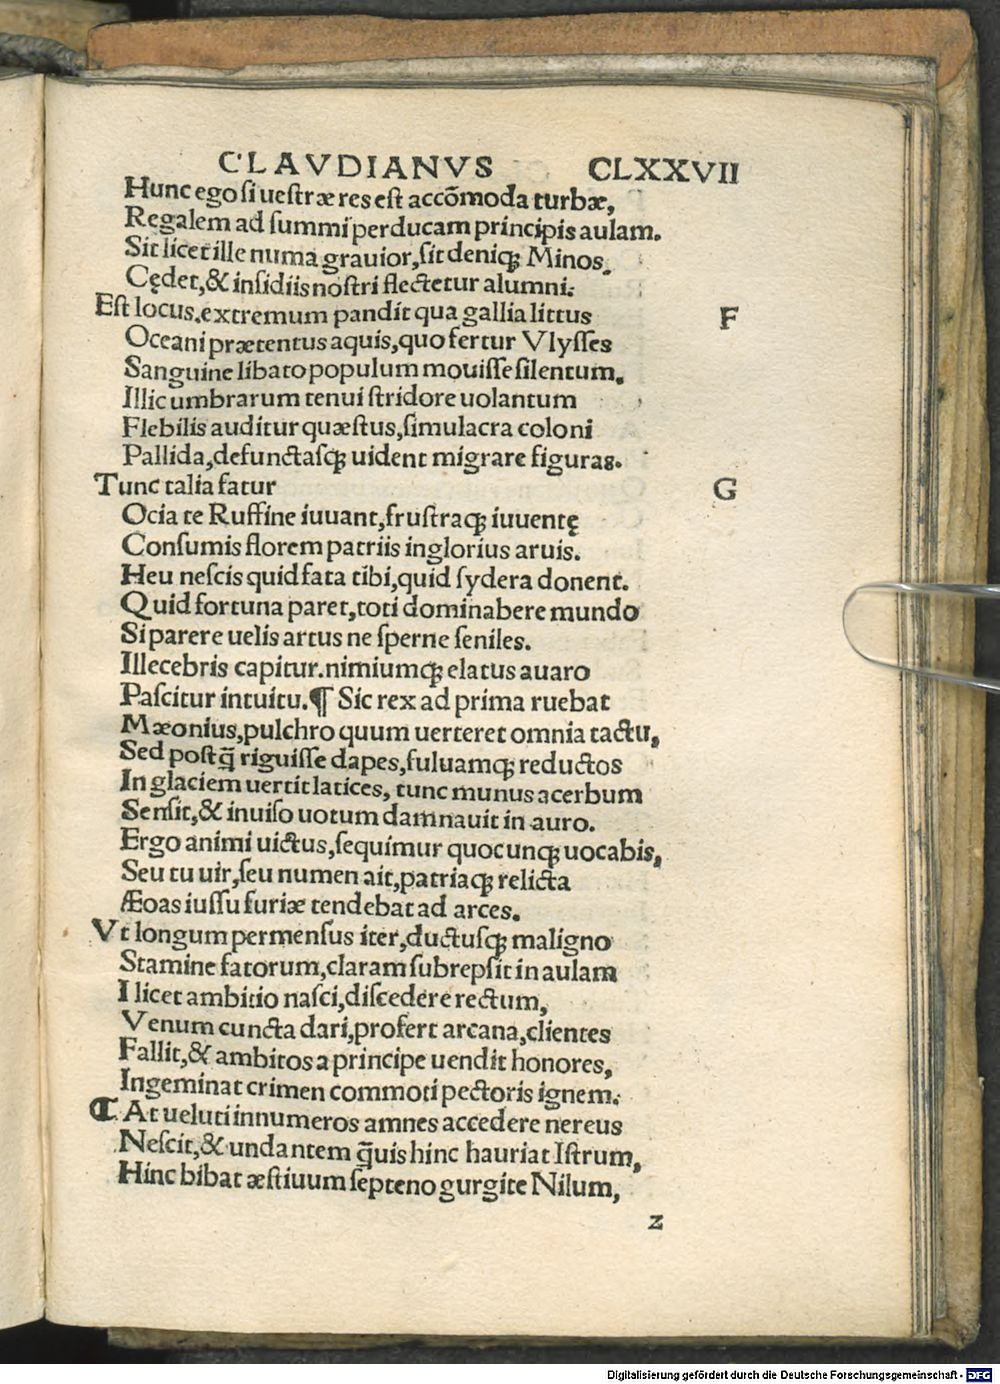 CLAVDIANVS CLXXVII
Hunc ego si uestræ res est accõmoda turbæ,
Regalem ad summi perducam principis aulam.
Sit licet ille numa grauior, sit deniq; Minos.
Cędet, & insidiis nostri flectetur alumni.
Est locus. extremum pandit qua gallia littus F
Oceani prætentus aquis, quo fertur Vlysses
Sanguine libato populum mouisse silentum.
Illic umbrarum tenui stridore uolantum
Flebilis auditur quæstus, simulacra coloni
Pallida, defunctasq; uident migrare figuras.
Tunc talia fatur G
Ocia te Ruffine iuuant, frustraq; iuuentę
Consumis florem patriis inglorius aruis.
Heu nescis quid fata tibi, quid sydera donent.
Quid fortuna paret, toti dominabere mundo
Si parere uelis artus ne sperne seniles.
Illecebris capitur. nimiumq; elatus auaro
Pascitur intuitu. ¶ Sic rex ad prima ruebat
Mæonius, pulchro quum uerteret omnia tactu,
Sed postq̃ riguisse dapes, fuluamq; reductos
In glaciem uertit latices, tunc munus acerbum
Sensit, & inuiso uotum damnauit in auro.
Ergo animi uictus, sequimur quocunq; uocabis,
Seu tu uir, seu numen ait, patriaq; relicta
Æoas iussu furiæ tendebat ad arces.
Vt longum permensus iter, ductusq; maligno
Stamine fatorum, claram subrepsit in aulam
I licet ambitio nasci, discedere rectum,
Venum cuncta dari, profert arcana, clientes
Fallit, & ambitos a principe uendit honores,
Ingeminat crimen commoti pectoris ignem.
¶ At ueluti innumeros amnes accedere nereus
Nescit, & undantem q̃uis hinc hauriat Istrum,
Hinc bibat æstiuum septeno gurgite Nilum,
z
Digitalisierung gefördert durch die Deutsche Forschungsgemeinschaft - DFG